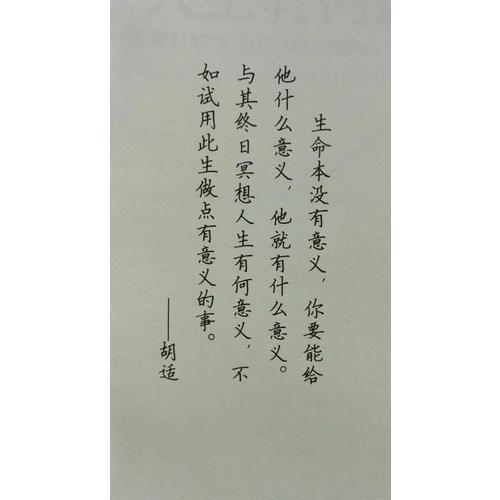 生命本没有意义，你要能给
他什么意义，他就有什么意义。
与其终日冥想人生有何意义，不
如试用此生做点有意义的事。
——胡适